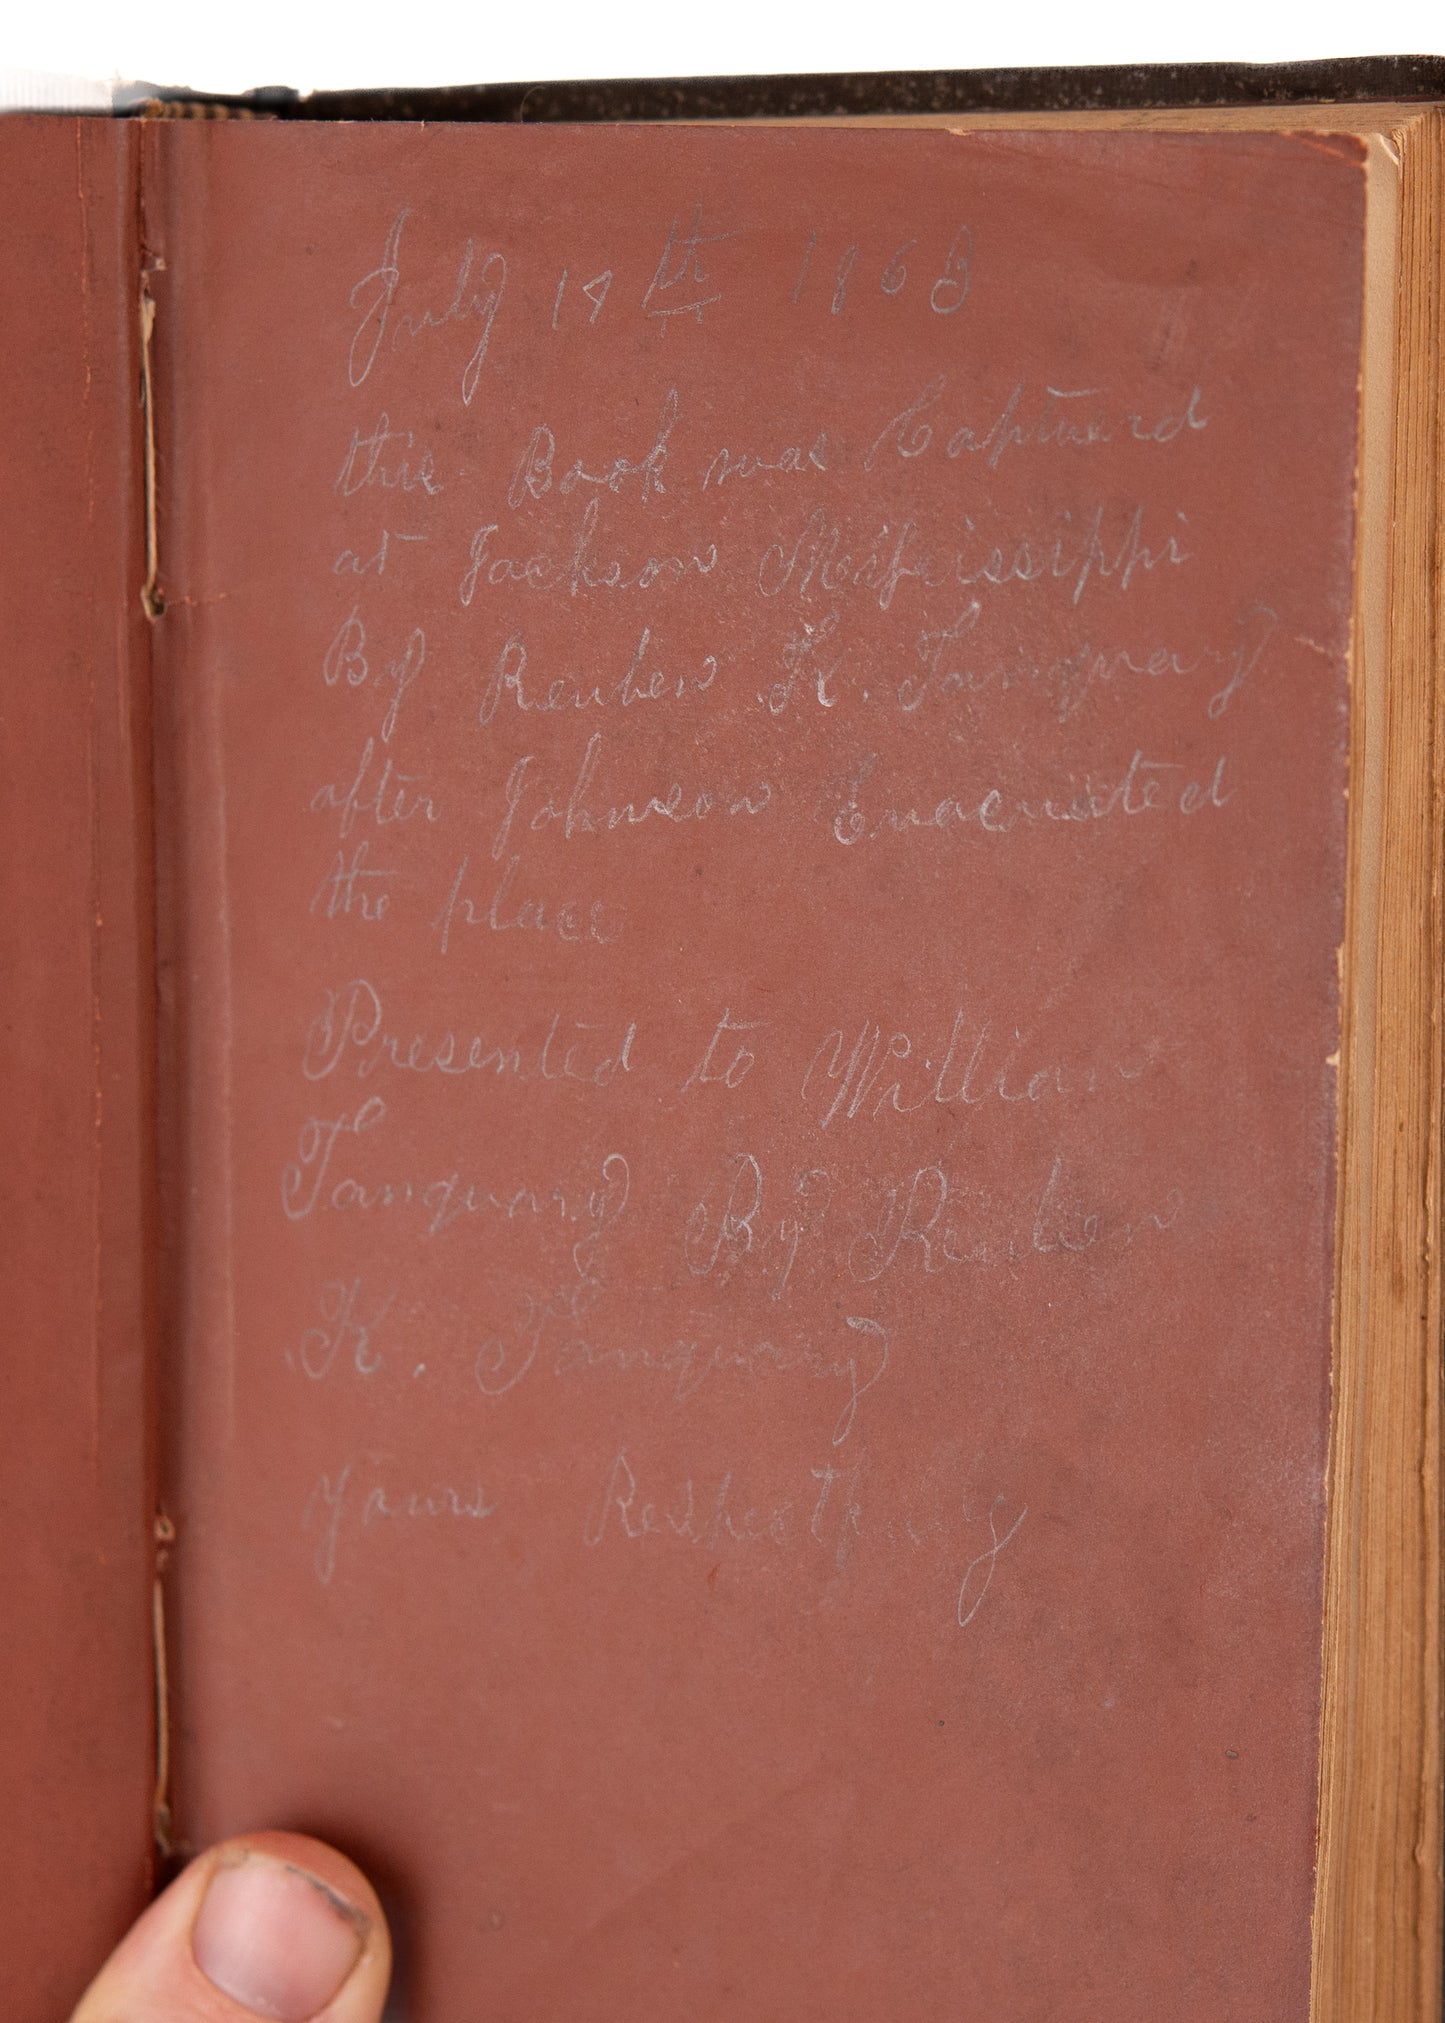 July 19th 1863
this Book was Capturd
at Jackson Missfissippi
By Reuben K. Tanquary
after Johnson Evacuated
the place
Presented to William
Tanquary By Reuben
K. Tanquary
yours Respectfuly